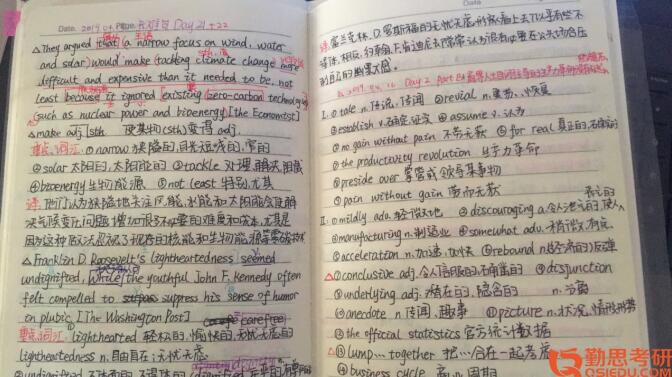 Date. 2019.04 Page. Day 21+22
△They argued that a narrow focus on wind, water
and solar would make tackling climate change more
difficult and expensive than it needed to be, not
least because it ignored existing zero-carbon technology
(such as nuclear power and bioenergy) [the Economist]
△make adj. sth. 使某物(sth)变得 adj.
重点词汇: ①narrow 狭隘的,目光短浅的,窄的
②solar 太阳的,太阳能的 ③tackle 处理,解决,阻截
④bioenergy 生物能源 ⑤not least 特别,尤其
译:他们认为狭隘地关注风能,水能和太阳能会使解
决气候变化问题增加很多不必要的难度和成本,尤其是
因为这种做法忽视了现存的核能和生物能源等零碳技术
△Franklin D. Roosevelt's lightheartedness seemed
undignified, while the youthful John F. Kennedy often
felt compelled to suppress his sense of humor
in plubic. [The Washington Post]
重点词汇: lighthearted 轻松的,愉快的,无忧无虑的 carefree
lightheartedness n. 自由自在;无忧无虑
undignified
译:富兰克林.D.罗斯福的无忧无虑
Day 2 Part
I. ①tale n. 传说,传闻 ②revial n. 复苏,恢复
③establish v. 确定,证实 ④assume v. 认为
⑤no gain without pain 不劳无获 ⑥for real 真正的,确实的
⑦the productivity revolution 生产力革命
⑧preside over 掌管或领导某事物
⑨pain without gain 劳而无获
II. ①mildly adv. 轻微地 ②discouraging a. 令人泄气的
③manufacturing n. 制造业 ④somewhat adv. 稍微,有点
⑤acceleration n. 加速,加快 ⑥rebound n. 经济的反弹
△⑦conclusive adj. 令人信服的,确凿的 ⑧disjunction
⑨underlying adj. 潜在的,隐含的 n. 分离
⑩anecdote n. 传闻,趣事 ⑪picture n. 状况,情形形势
⑫the official statistics 官方统计数据
△⑬lump... together 把...合在一起考虑
⑭business cycle 商业周期
勤思考研
QSIEDU.COM